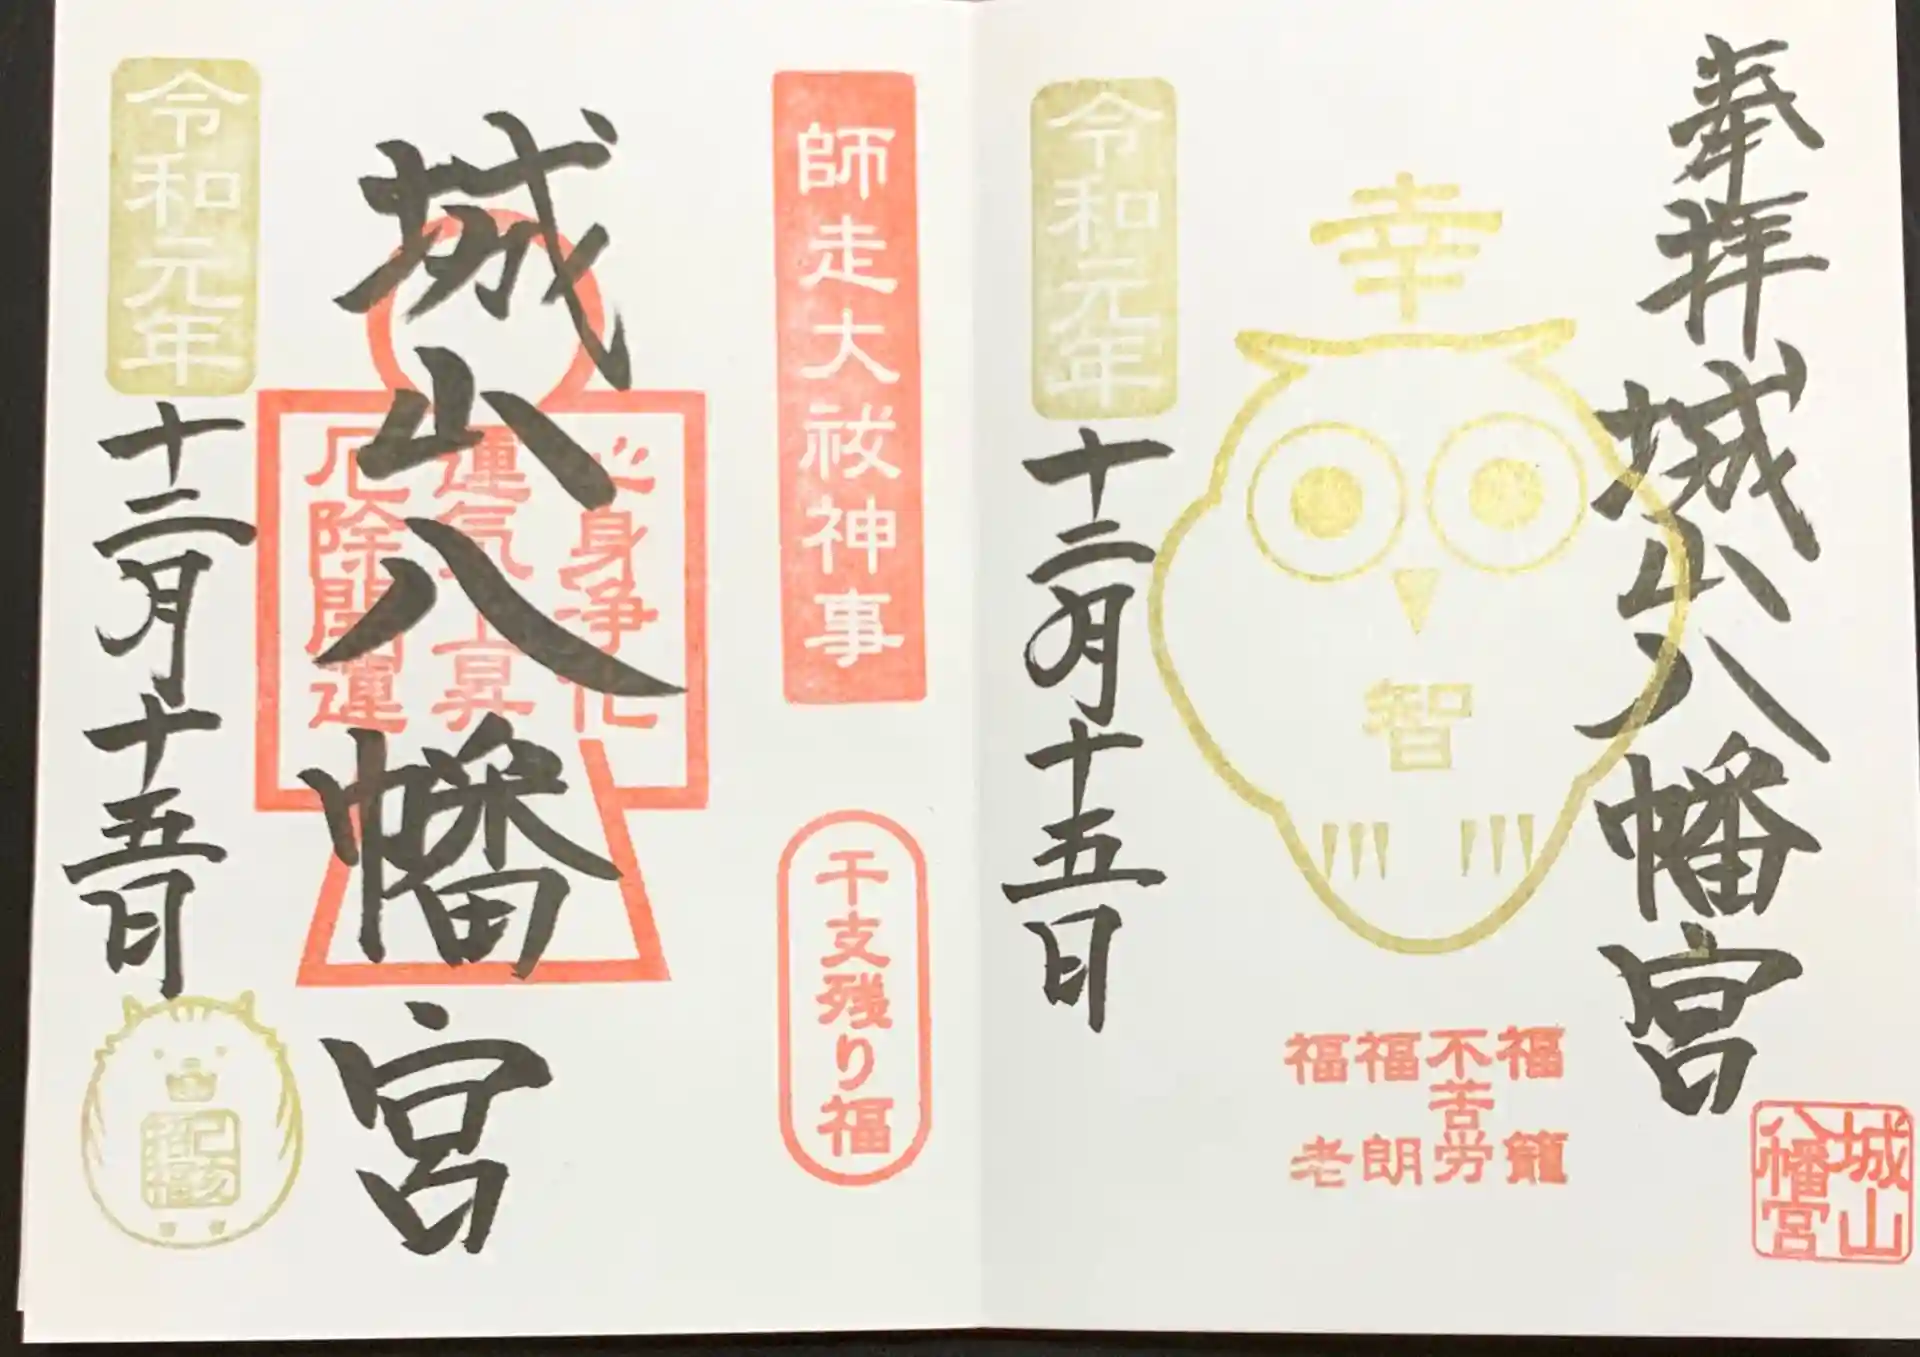 奉拝
城山八幡宮
城山
八幡宮
幸
智
福籠
不苦労
福朗
福老
令和元年
十二月十五日
師走大祓神事
干支残り福
城山八幡宮
心身浄化
運気上昇
厄除開運
令和元年
十二月十五日